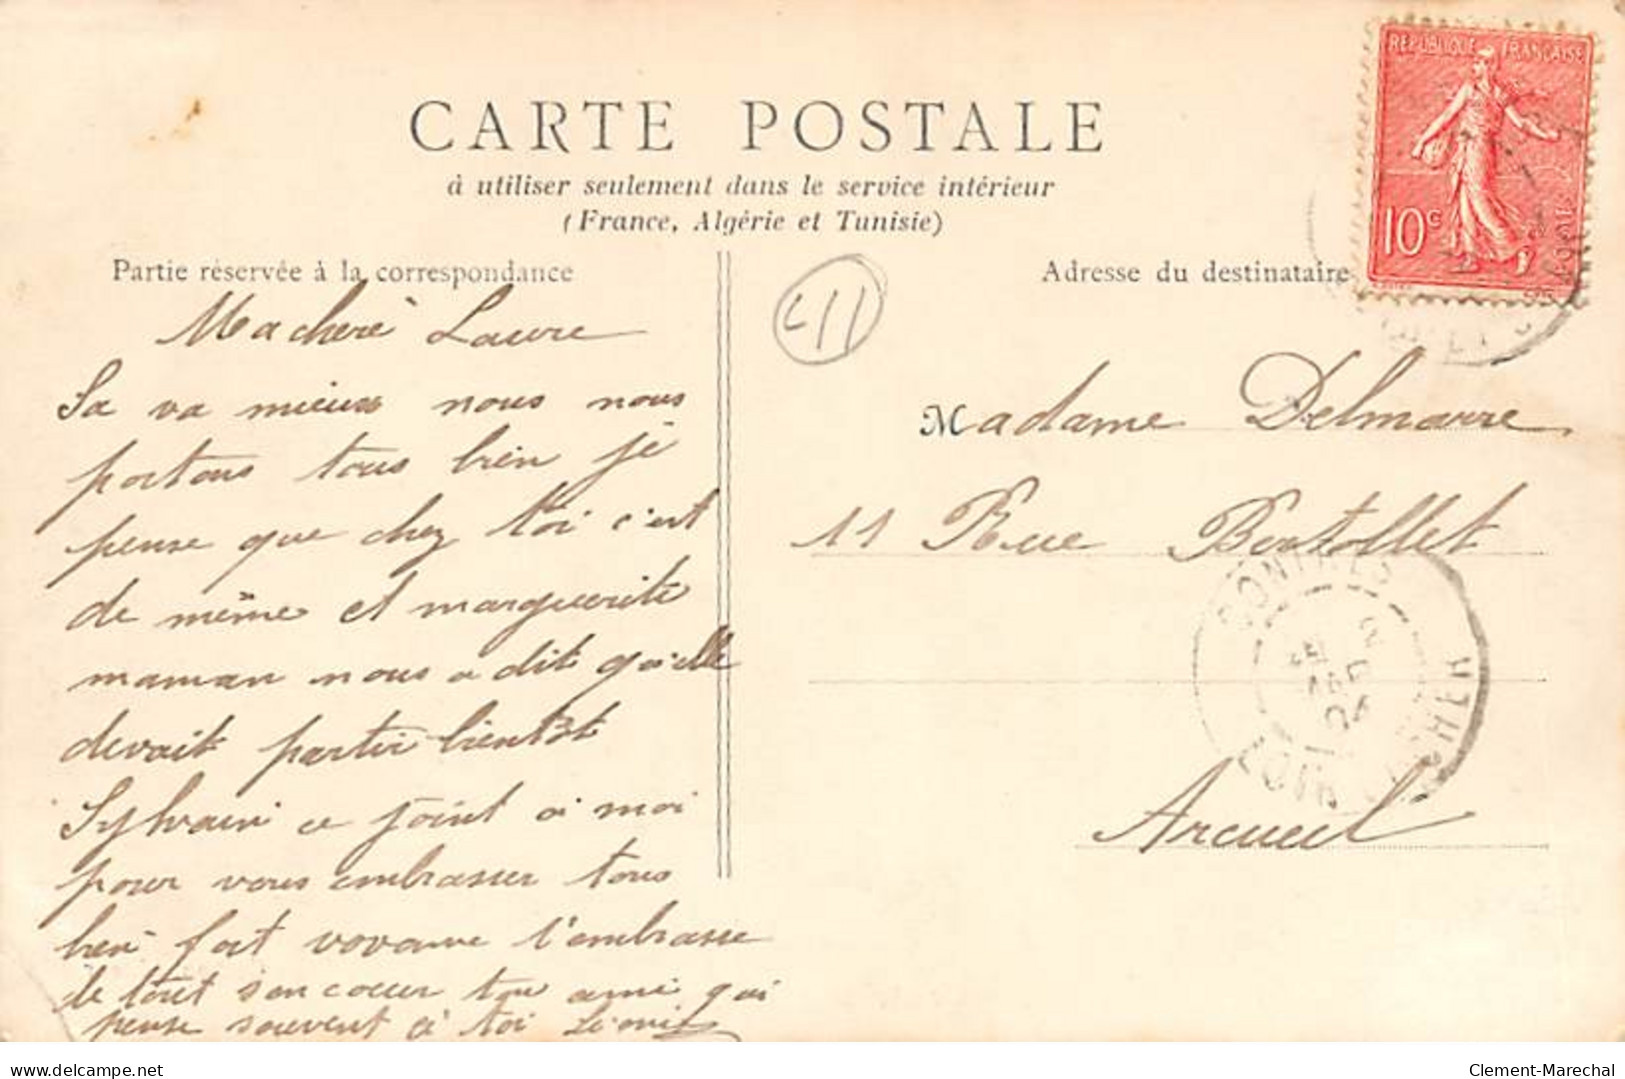 RÉPUBLIQUE FRANÇAISE
10c
CARTE POSTALE
à utiliser seulement dans le service intérieur
(France, Algérie et Tunisie)
Partie réservée à la correspondance
Adresse du destinataire
411
Ma cheré Laure
Sa va mieux nous nous
portons tous bien je
pense que chez toi c'est
de même et marguerite
maman nous a dit qu'elle
devait partir bientôt
Sylvain ce joint à moi
pour vous embrasser tous
bien fort t'embrasse
de tout son coeur ton ami qui
pense souvent à toi
Madame Delmarre
11 Rue Bertollet
Arcueil
CONTRES
LOIR ET CHER
04
delcampe.net
Clement-Marechal